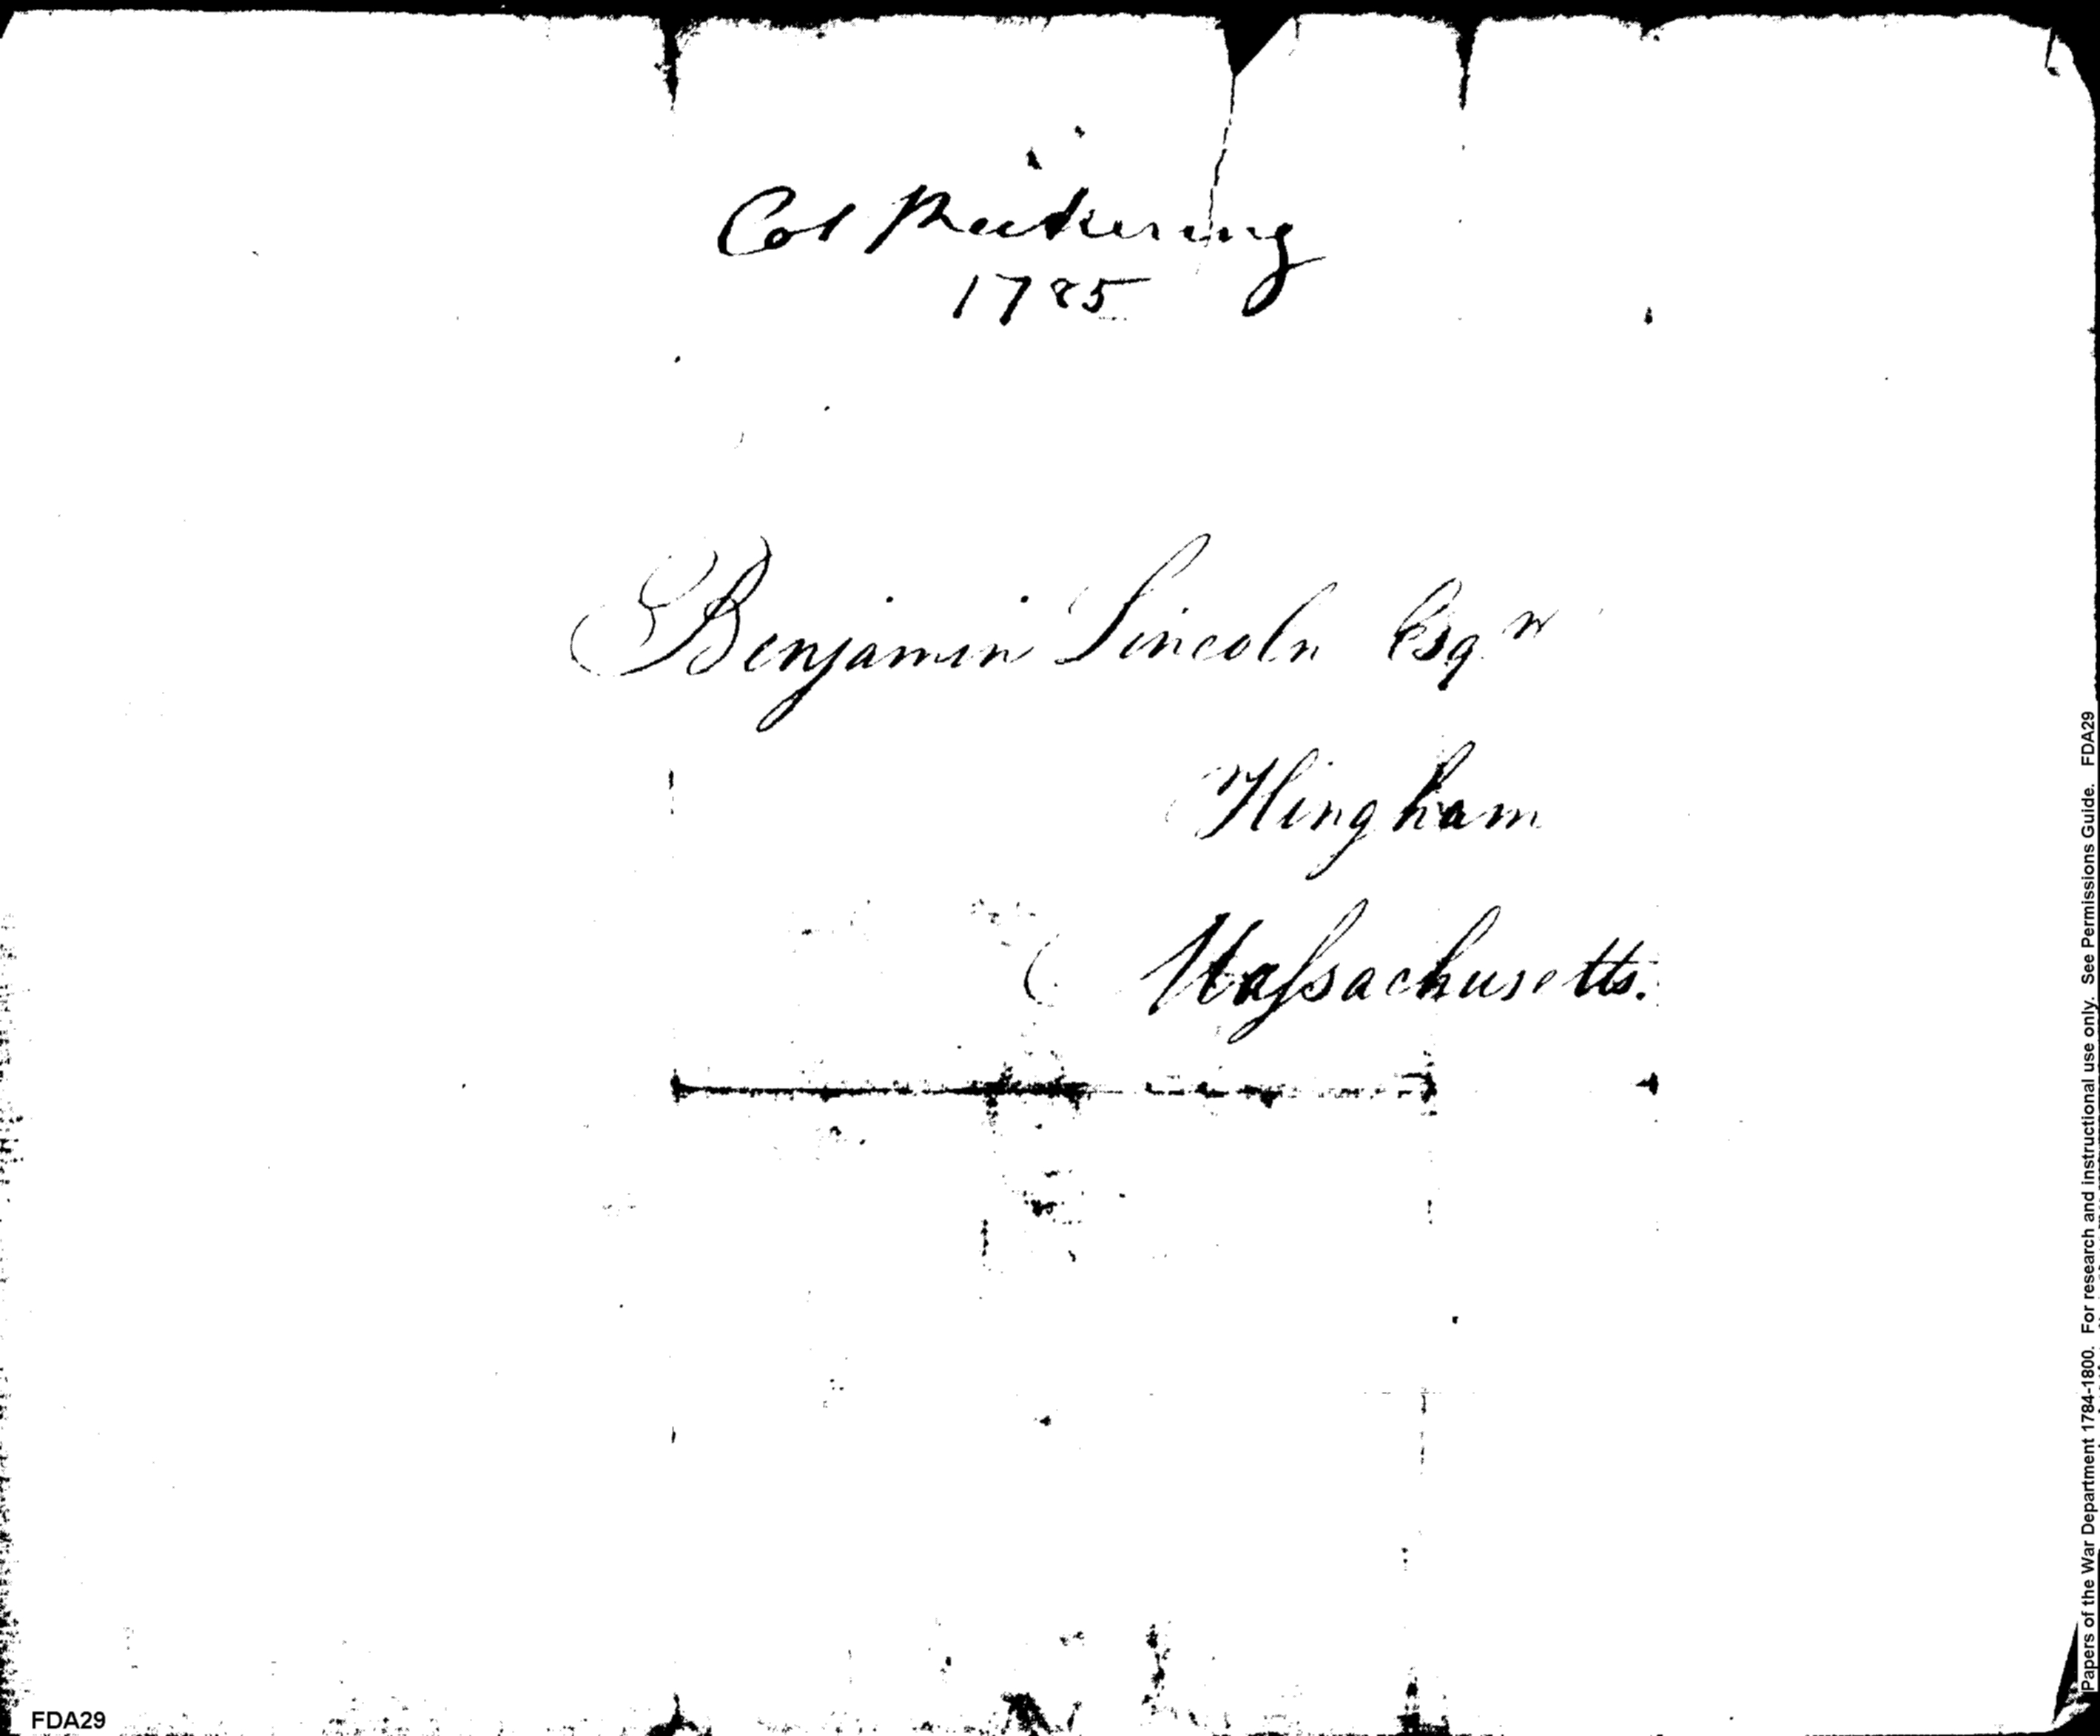 Col Pickering
1785
Benjamin Lincoln Esqr
Hingham
Massachusetts.
Papers of the War Department 1784-1800. For research and instructional use only. See Permissions Guide. FDA29
FDA29